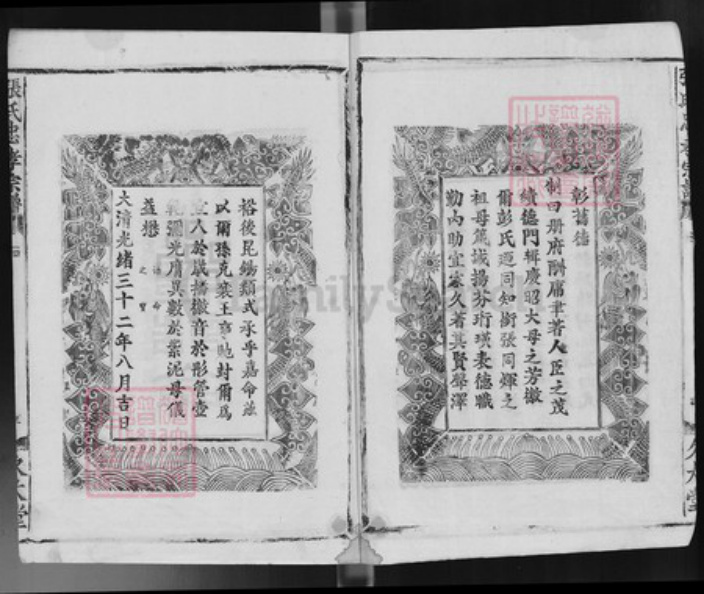 彰舊德
制曰册府酬庸聿著人臣之茂
績德門輯慶昭大母之芳徽
爾彭氏迺同知銜張同輝之
祖母箴誡揚芬珩璜表德職
勤內助宜家久著其賢聲澤
裕後昆錫類式承乎嘉命茲
以爾孫克襄王事貤封爾爲
宜人於戲播徽音於彤管壼
範彌光膺異數於紫泥母儀
益懋
之寶
大清光緒三十二年八月吉日
張氏忠孝宗譜
久大堂
FamilySearch